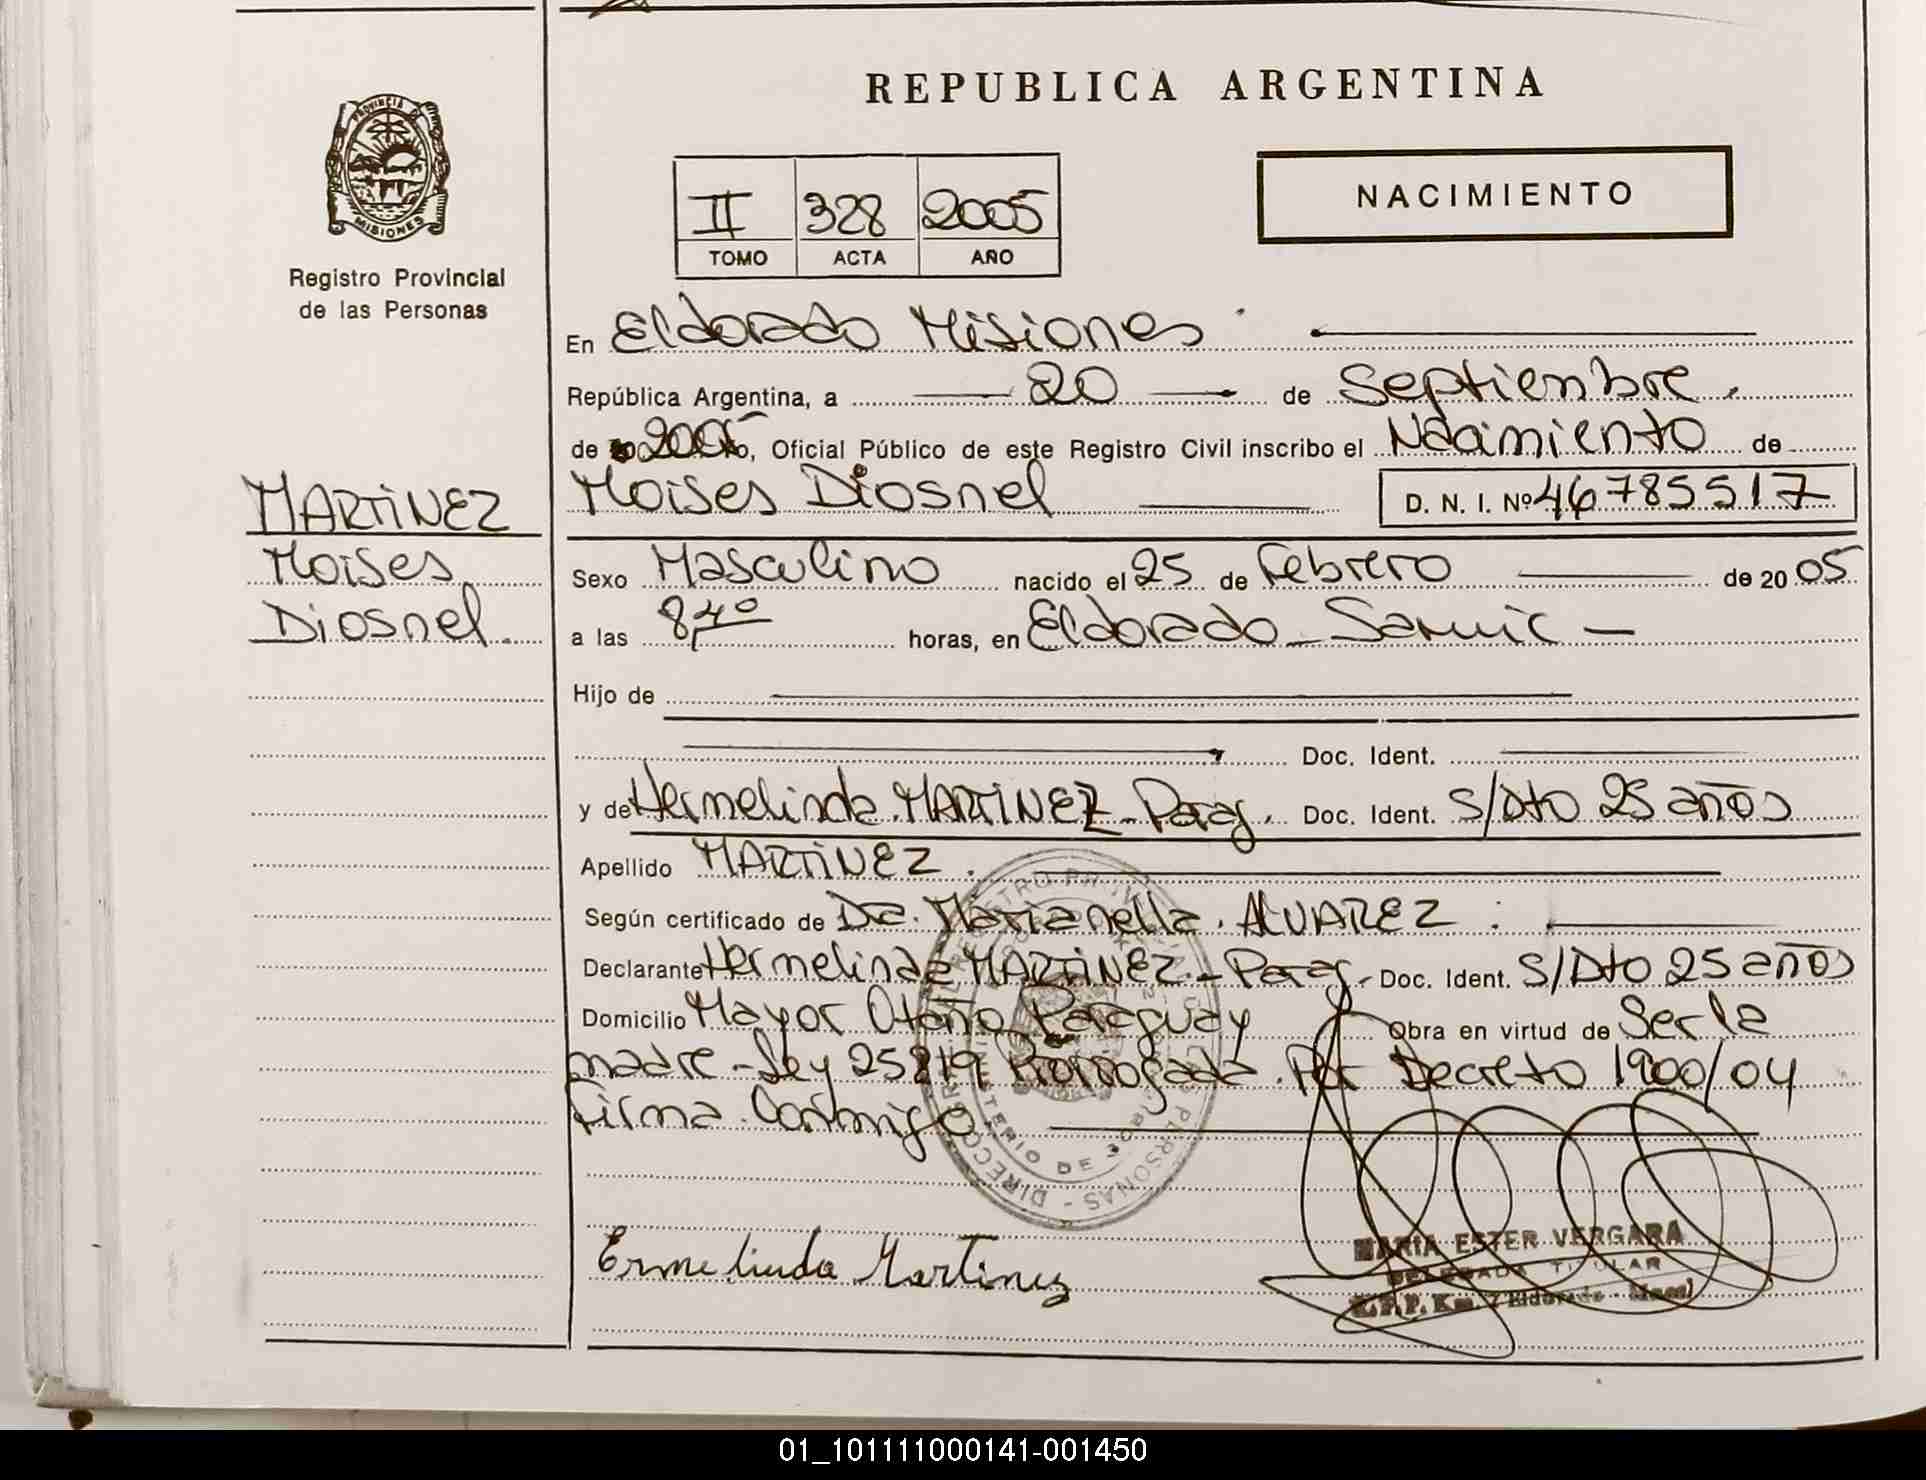 REPUBLICA ARGENTINA
PROVINCIA DE
MISIONES
Registro Provincial
de las Personas
II 328 2005
TOMO ACTA AÑO
NACIMIENTO
En Eldorado Misiones
República Argentina, a 20 de Septiembre.
de 2005, Oficial Público de este Registro Civil inscribo el Nacimiento de
MARTiNEZ
Moises
Diosnel.
Moises Diosnel D. N. I. Nº 46785517
Sexo Masculino nacido el 25 de Febrero de 20 05
a las 8,40 horas, en Eldorado - Samic -
Hijo de
Doc. Ident.
y de Hermelinda MARTiNEZ - Parag. Doc. Ident. S/Dto 25 años
Apellido MARTiNEZ.
Según certificado de Dra. Marianella ALVAREZ
Declarante Hermelinda MARTiNEZ - Parag. Doc. Ident. S/Dto 25 años
Domicilio Mayor Otaño Paraguay Obra en virtud de Ser la
madre - Ley 25819 Prorrogada Por Decreto 1900/04
Firma Conmigo
Ermelinda Martinez
MARIA ESTER VERGARA
DELEGADA TITULAR
Km. 7 Eldorado
01_101111000141-001450